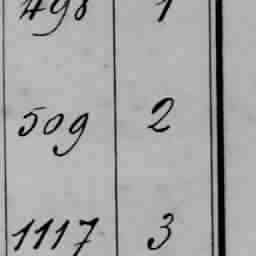 498 1
509 2
1117 3